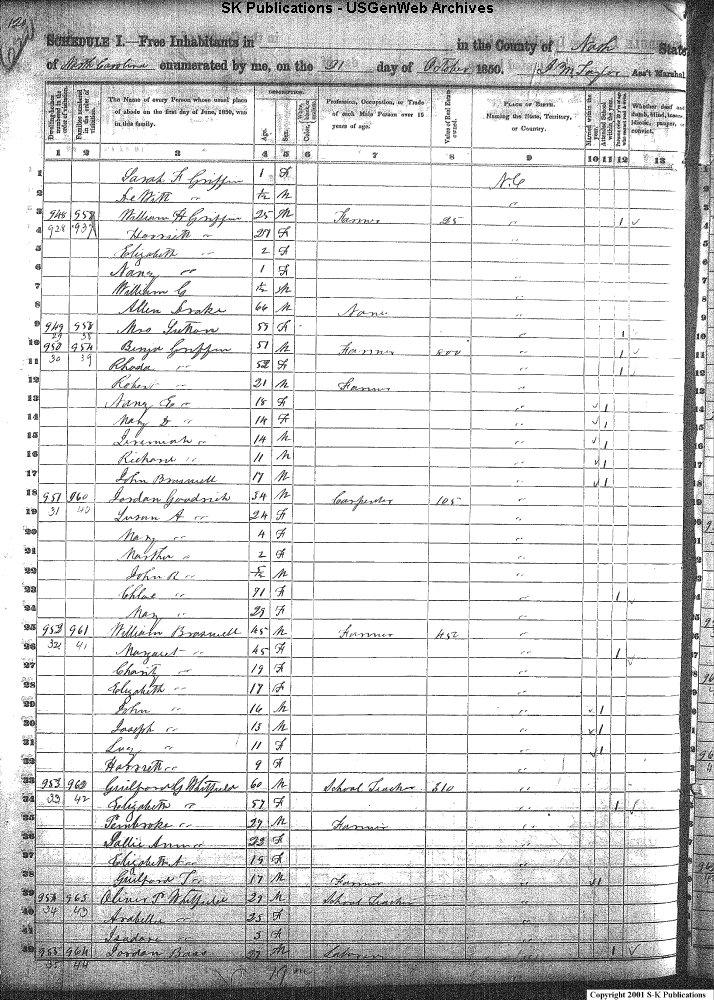 SK Publications - USGenWeb Archives
SCHEDULE I.—Free Inhabitants in in the County of Nash State
of North Carolina enumerated by me, on the 21 day of October 1850. Ass't Marshal
DESCRIPTION.
Dwelling-houses numbered in the order of visitation. Families numbered in the order of visitation. The Name of every Person whose usual place of abode on the first day of June, 1850, was in this family. Age. Sex. Profession, Occupation, or Trade of each Male Person over 15 years of age. Value of Real Estate owned. PLACE OF BIRTH. Naming the State, Territory, or Country. Married within the year. Attended School within the year. Whether deaf and dumb, blind, insane, idiotic, pauper, or convict.
1 2 3 4 5 6 7 8 9 10 11 12 13
1 Sarah F Griffin 1 F N.C
2 De Witt " M "
3 948 958 William H Griffin 25 M Farmer 25 " 1
4 928 937 Harriett " 27 F "
5 Elizabeth " 2 F "
6 Nancy " 1 F "
7 William G M "
8 Allen Drake 66 M None "
9 949 Mrs F "
10 950 Benja Griffin 51 M Farmer 800 " 1
11 30 39 Rhoda " 52 F " 1
12 Robert " 21 M Farmer "
13 Nancy E " 18 F " 1
14 Mary " 14 F " 1
15 Jeremiah " 14 M " 1
16 Richard " 11 M " 1
17 John Braswell 17 M " 1
18 951 960 Jordan Goodrich 34 M Carpenter 105 "
19 31 40 Susan A " 24 F "
20 Mary " 4 F "
21 Martha " 2 F "
22 John R " M "
23 Chloe " 71 F " 1
24 May " 29 F "
25 952 961 William Braswell 45 M Farmer 452 "
26 32 41 Margaret " 45 F " 1
27 Charity " 19 F "
28 Elizabeth " 17 F "
29 John " 16 M " 1
30 Joseph " 13 M " 1
31 Lucy " 11 F " 1
32 Harriett " 9 F "
33 953 962 Guilford G Whitfield 60 M School Teacher 810 "
34 33 42 Elizabeth " 57 F " 1
35 Pembroke " 27 M Farmer "
36 Sallie Ann " 22 F "
37 Elizabeth A " 19 F "
38 Guilford T " 17 M Farmer " 1
39 954 963 Oliver P Whitfield 29 M School Teacher "
40 34 43 Arabella " 25 F "
41 Isadore " 3 F "
42 955 964 Jordan Bass 27 M Laborer " 1
35 44
Copyright 2001 S-K Publications